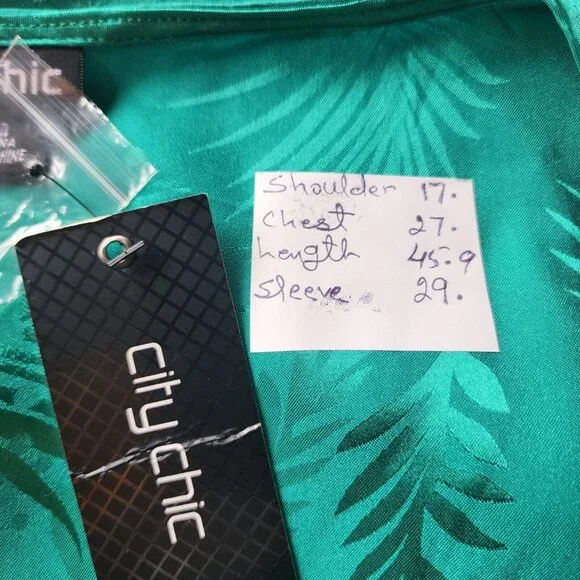 hic
NA
Shoulder 17.
Chest 27.
Length 45.9
Sleeve 29.
city chic